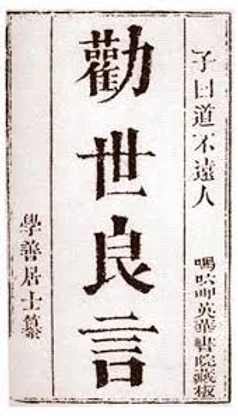 子曰道不遠人
英華書院藏板
勸世良言
學善居士纂